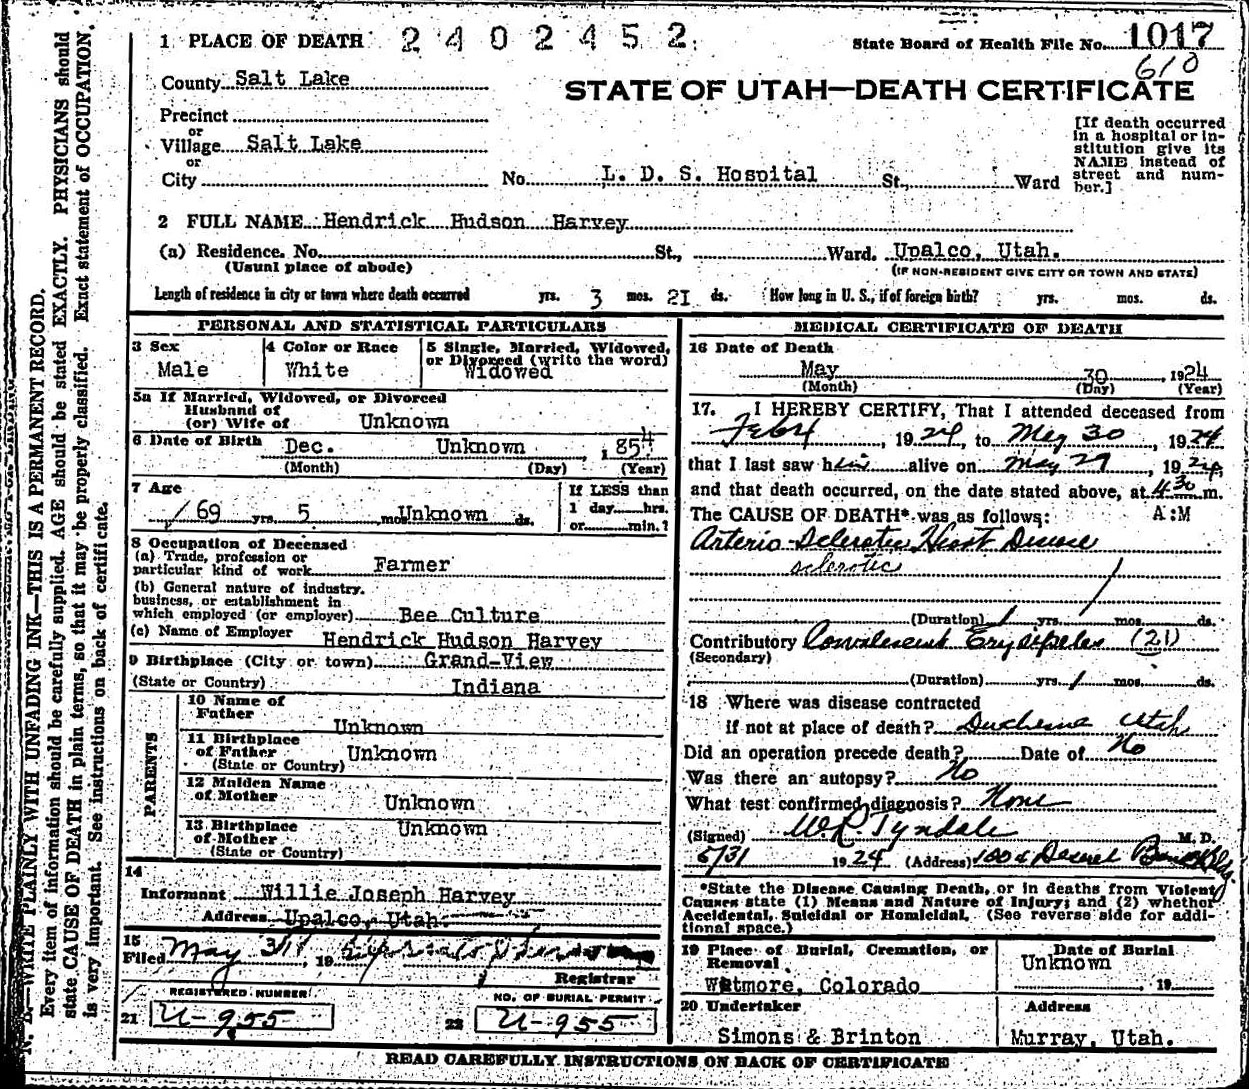 1 PLACE OF DEATH 2402452
State Board of Health File No. 1017
610
County Salt Lake
STATE OF UTAH—DEATH CERTIFICATE
Precinct
or
Village Salt Lake
or
City
No. L. D. S. Hospital St., Ward
[If death occurred
in a hospital or in-
stitution give its
NAME instead of
street and num-
ber.]
2 FULL NAME Hendrick Hudson Harvey
(a) Residence. No. St., Ward. Upalco, Utah.
(Usual place of abode)
(IF NON-RESIDENT GIVE CITY OR TOWN AND STATE)
Length of residence in city or town where death occurred yrs. 3 mos. 21 ds. How long in U. S., if of foreign birth? yrs. mos. ds.
PERSONAL AND STATISTICAL PARTICULARS
3 Sex
Male
4 Color or Race
White
5 Single, Married, Widowed,
or Divorced (write the word)
Widowed
5a If Married, Widowed, or Divorced
Husband of
(or) Wife of Unknown
6 Date of Birth Dec. Unknown , 1854
(Month) (Day) (Year)
7 Age
69 yrs. 5 mos. Unknown ds.
If LESS than
1 day hrs.
or min.?
8 Occupation of Deceased
(a) Trade, profession or
particular kind of work Farmer
(b) General nature of industry.
business, or establishment in
which employed (or employer) Bee Culture
(c) Name of Employer Hendrick Hudson Harvey
9 Birthplace (City or town) Grand-View
(State or Country) Indiana
PARENTS
10 Name of
Father Unknown
11 Birthplace
of Father Unknown
(State or Country)
12 Maiden Name
of Mother Unknown
13 Birthplace
of Mother Unknown
(State or Country)
14
Informant Willie Joseph Harvey
Address Upalco, Utah.
15
Filed May 31 , 19
Registrar
REGISTERED NUMBER
21 U-955
NO. OF BURIAL PERMIT
22 U-955
MEDICAL CERTIFICATE OF DEATH
16 Date of Death
May 30 , 1924
(Month) (Day) (Year)
17. I HEREBY CERTIFY, That I attended deceased from
, 1924, to May 30 , 1924
that I last saw him alive on May 29 , 1924,
and that death occurred, on the date stated above, at 4 30 m.
A:M
The CAUSE OF DEATH* was as follows:
Arterio-Sclerotic Heart Disease
sclerotic
(Duration) 1 yrs. mos. ds.
Contributory Convalescent Erysipelas (21)
(Secondary)
(Duration) yrs. 1 mos. ds.
18 Where was disease contracted
if not at place of death? Duchesne Utah
Did an operation precede death? Date of No
Was there an autopsy? No
What test confirmed diagnosis? None
(Signed) W.R. Tyndale M. D.
5/31 1924 (Address) Deseret Bank Bldg.
*State the Disease Causing Death, or in deaths from Violent
Causes state (1) Means and Nature of Injury; and (2) whether
Accidental, Suicidal or Homicidal. (See reverse side for addi-
tional space.)
19 Place of Burial, Cremation, or
Removal
Wetmore, Colorado
Date of Burial
Unknown
, 19
20 Undertaker
Simons & Brinton
Address
Murray, Utah.
READ CAREFULLY INSTRUCTIONS ON BACK OF CERTIFICATE
N. B.—WRITE PLAINLY WITH UNFADING INK—THIS IS A PERMANENT RECORD.
Every item of information should be carefully supplied. AGE should be stated EXACTLY. PHYSICIANS should
state CAUSE OF DEATH in plain terms, so that it may be properly classified. Exact statement of OCCUPATION,
is very important. See instructions on back of certificate.